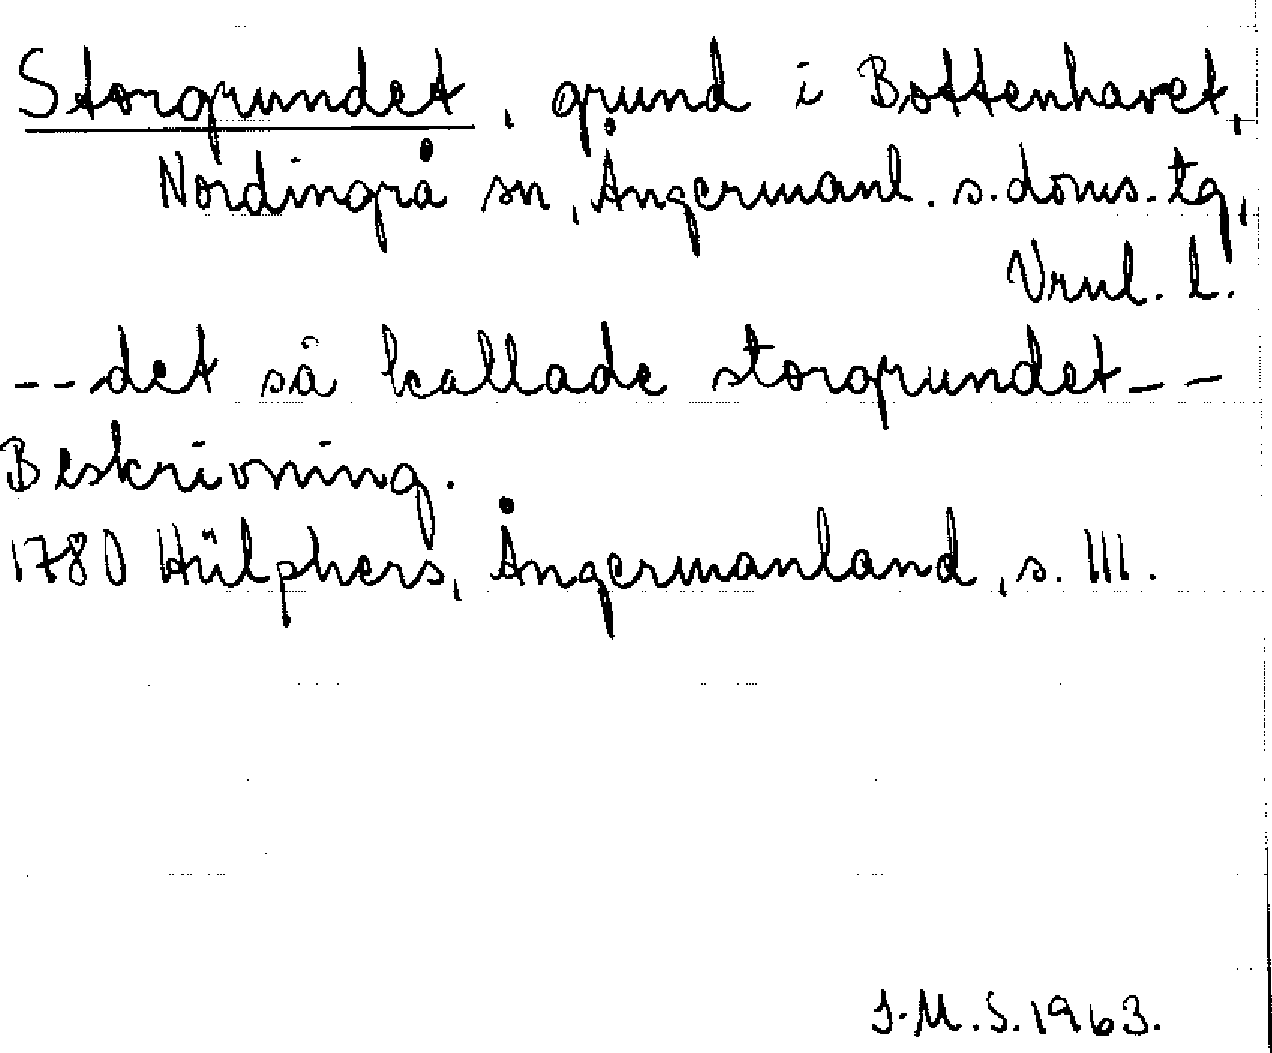 Storgrundet, grund i Bottenhavet,
Nordingrå sn, Ångermanl. s. doms. tg,
Vrnl. l.
-- det så kallade storgrundet --
Beskrivning.
1780 Hülphers, Ångermanland, s. 111.
J.M.S. 1963.